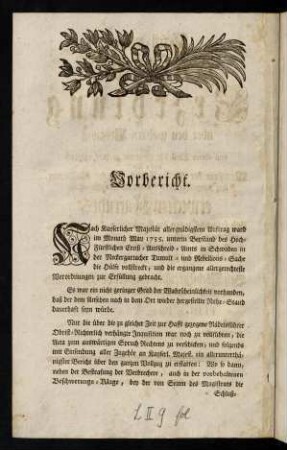 Vorbericht.
Nach Kayserlicher Majestät allergnädigstem Auftrag ward
im Monath May 1755. unterm Beystand des Hoch-
Fürstlichen Creiß-Ausschreib-Amts in Schwaben in
der Neckergartacher Tumult- und Rebellions-Sach
die Hülfe vollstreckt, und die ergangene allergerechteste
Verordnungen zur Erfüllung gebracht.
Es war ein nicht geringer Grad der Wahrscheinlichkeit vorhanden,
daß der dem Ansehen nach in dem Ort wieder hergestellte Ruhe-Stand
dauerhaft seyn würde.
Nur die über die zu gleicher Zeit zur Hafft gezogene Rädelsführer
Obrist-Richterlich verhängte Inquisition war noch zu vollführen, die
Acta zum auswärtigen Spruch Rechtens zu verschicken, und folgends
mit Einsendung aller Zugehör an Kayserl. Majest. ein allerunterthä-
nigster Bericht über den ganzen Vollzug zu erstatten: Wo so dann,
neben der Bestraffung der Verbrechere, auch in der vorbehaltenen
Beschwerungs-Rüge, bey der von Seiten des Magistrats die
Schluß-
L II 9 fol